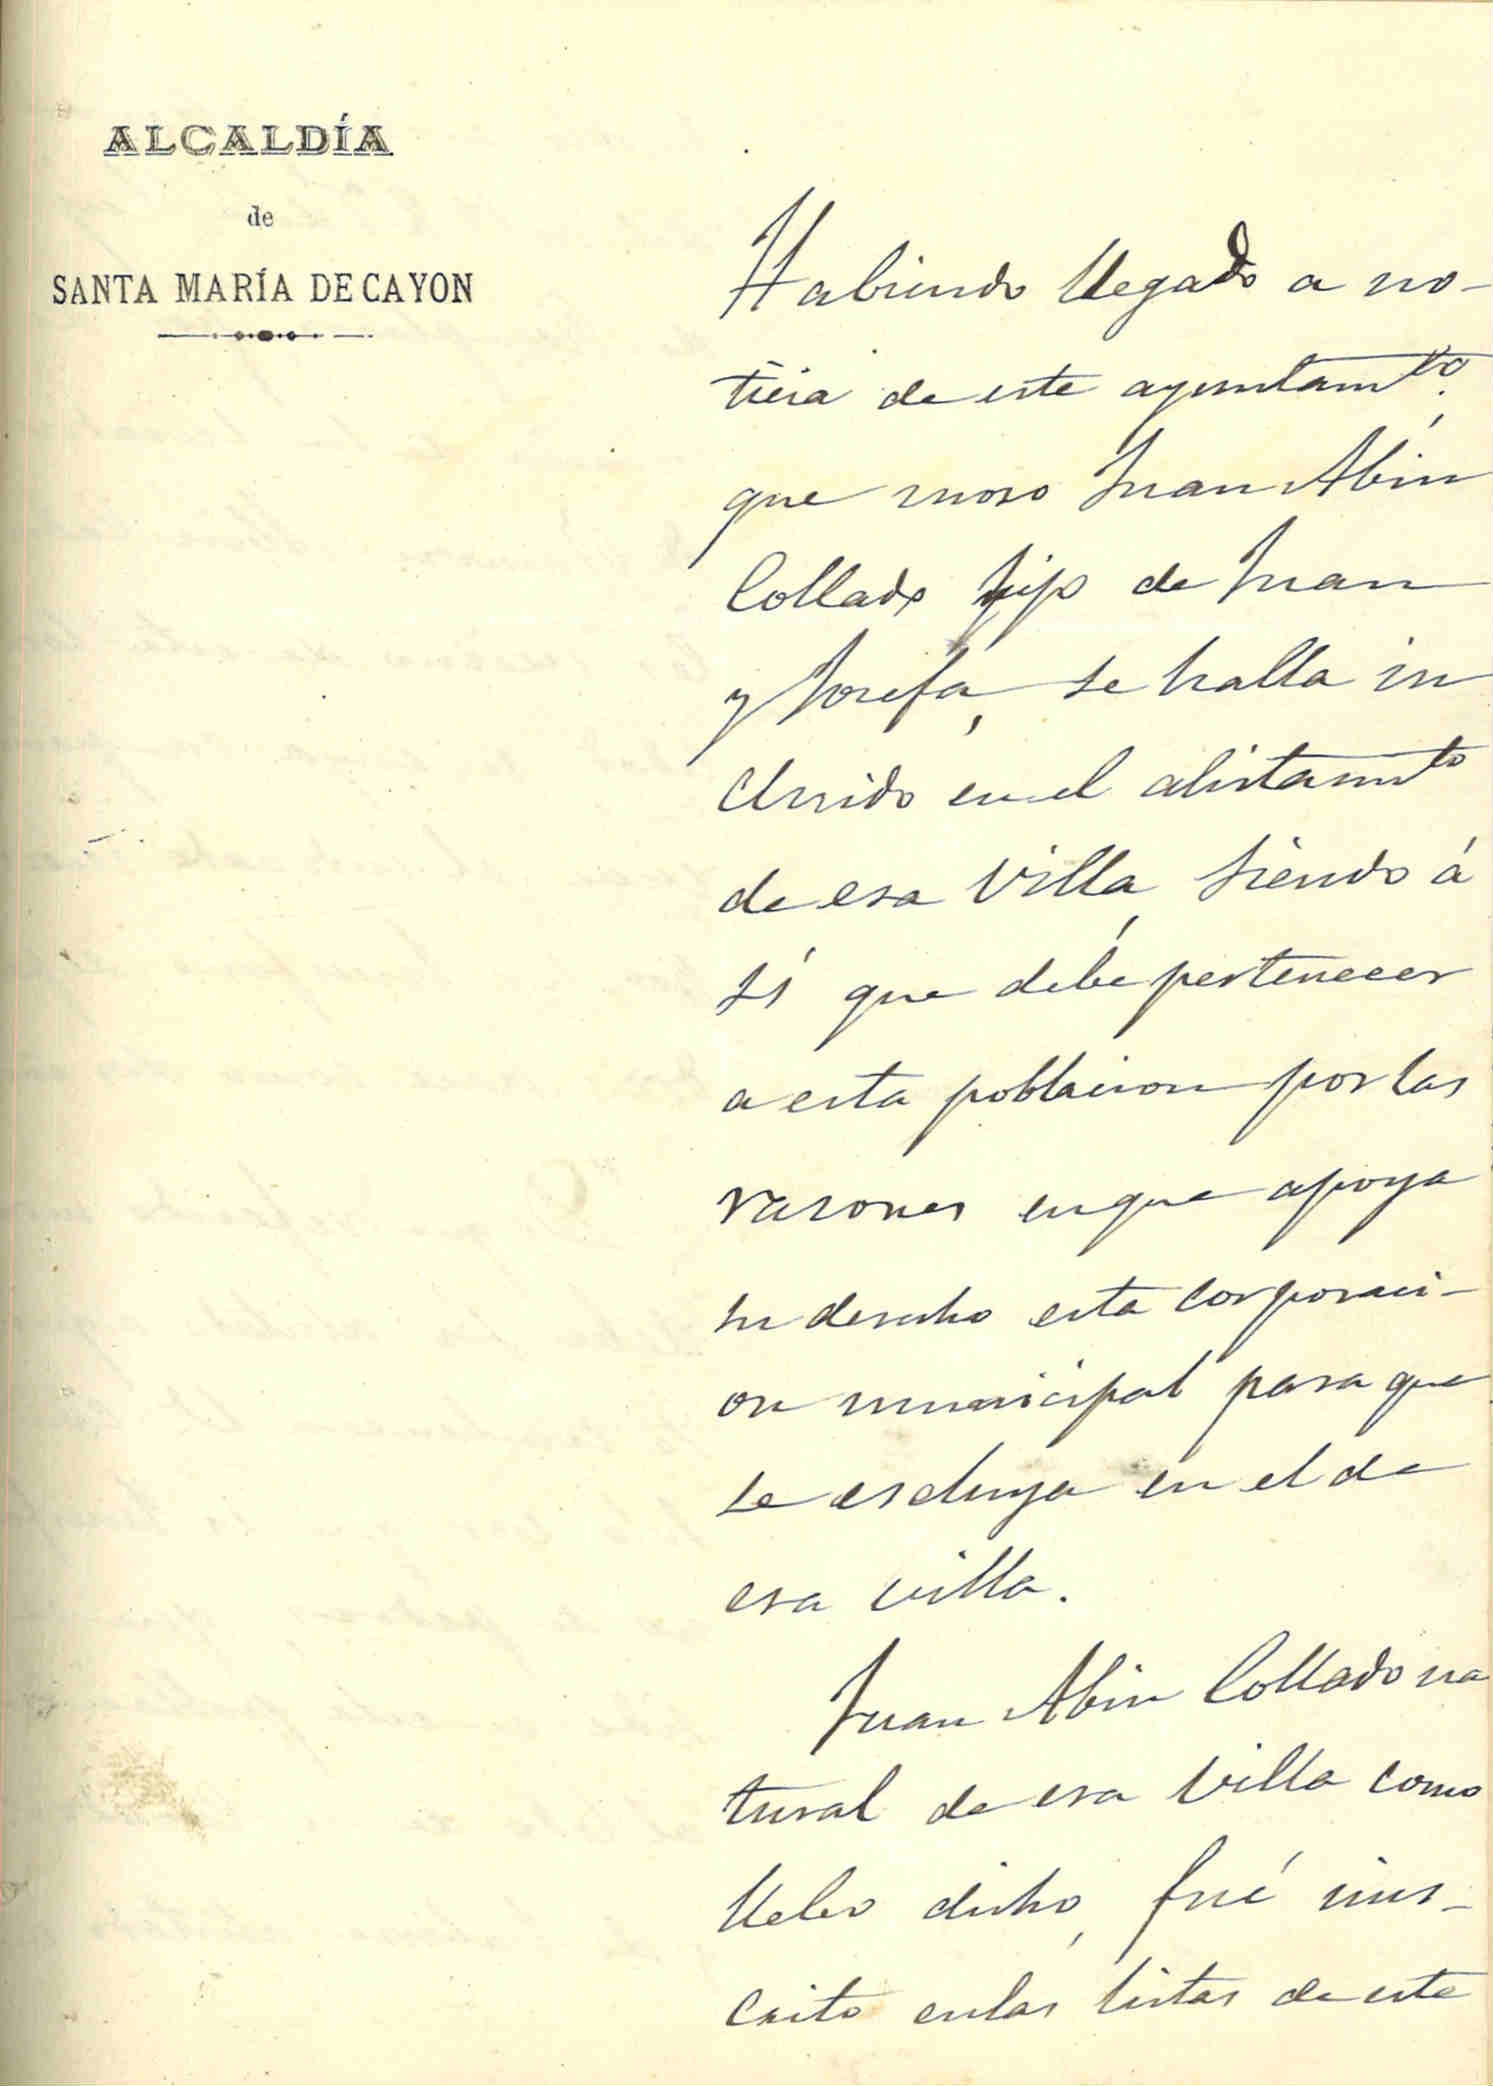 ALCALDÍA
de
SANTA MARÍA DE CAYON
Habiendo llegado a no-
ticia de este ayuntamto.,
que moso Juan Abin
Collado hijo de Juan
y Josefa, se halla in
cluido en el alistamto
de esa Villa, siendo á
sí que debe pertenecer
a esta poblacion por las
rasones en que apoya
su derecho esta corporaci-
on municipal para que
se escluya en el de
esa villa.
Juan Abin Collado na
tural de esa Villa como
llebo dicho, fué ins-
crito en las listas de este